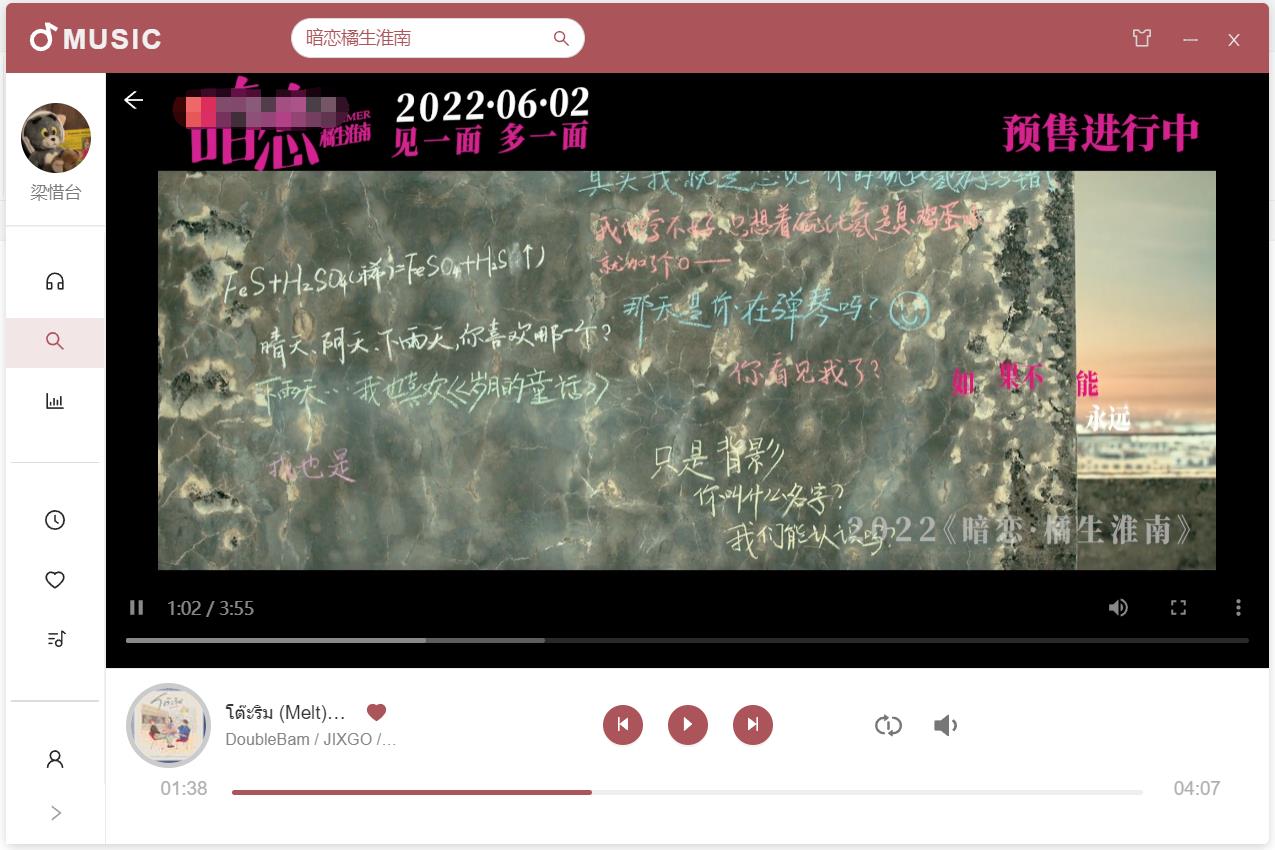 MUSIC
暗恋橘生淮南
X
梁惜台
暗恋
橘生淮南
2022·06·02
见一面 多一面
预售进行中
我也写不好,只想着硫化氢是臭鸡蛋味
就加了个o——
FeS+H₂SO₄(稀)=FeSO₄+H₂S(↑)
那天是你在弹琴吗?
晴天、阴天、下雨天,你喜欢哪一个?
你看见我了?
下雨天… 我也喜欢《岁月的童话》
如果不能
永远
我也是
只是背影
你叫什么名字?
我们能认识吗?
2022《暗恋·橘生淮南》
1:02 / 3:55
โต๊ะริม (Melt)…
DoubleBam / JIXGO /…
01:38
04:07